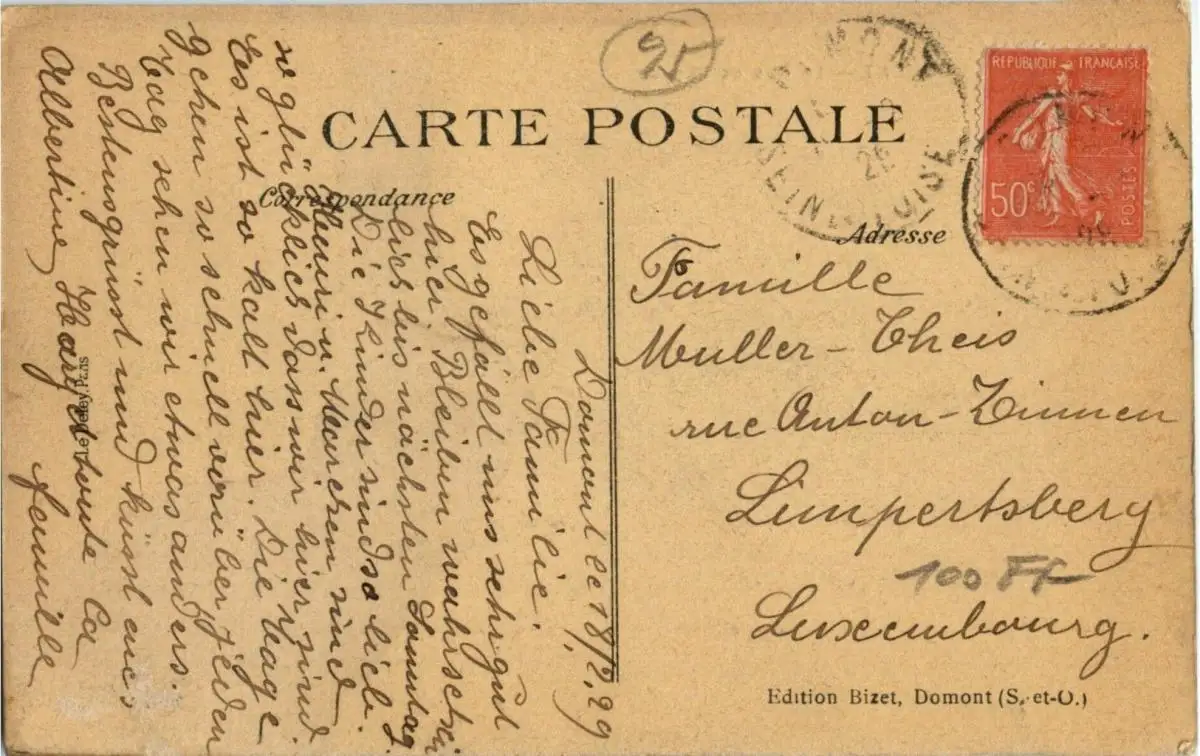 25
CARTE POSTALE
Correspondance
Adresse
RÉPUBLIQUE FRANÇAISE
50c
POSTES
DOMONT
SEINE-ET-OISE
Domont le 18/2, 29
Liebe Familie.
Es gefällt uns sehr gut
hier. Bleiben wahrschein
lich bis nächsten Sonntag.
Die Kinder sind so lieb.
Henri u. Marchen sind
so glücklich dass wir hier sind.
Es ist so kalt hier. Die Tage
gehen so schnell vorüber jeden
Tag sehen wir etwas anders.
Bestens grüsst und küsst euch
Albertine
Familie
Famille
Muller - Theis
rue Anton - Zinnen
Limpertsberg
100 FF
Luxembourg.
Edition Bizet, Domont (S.-et-O.)